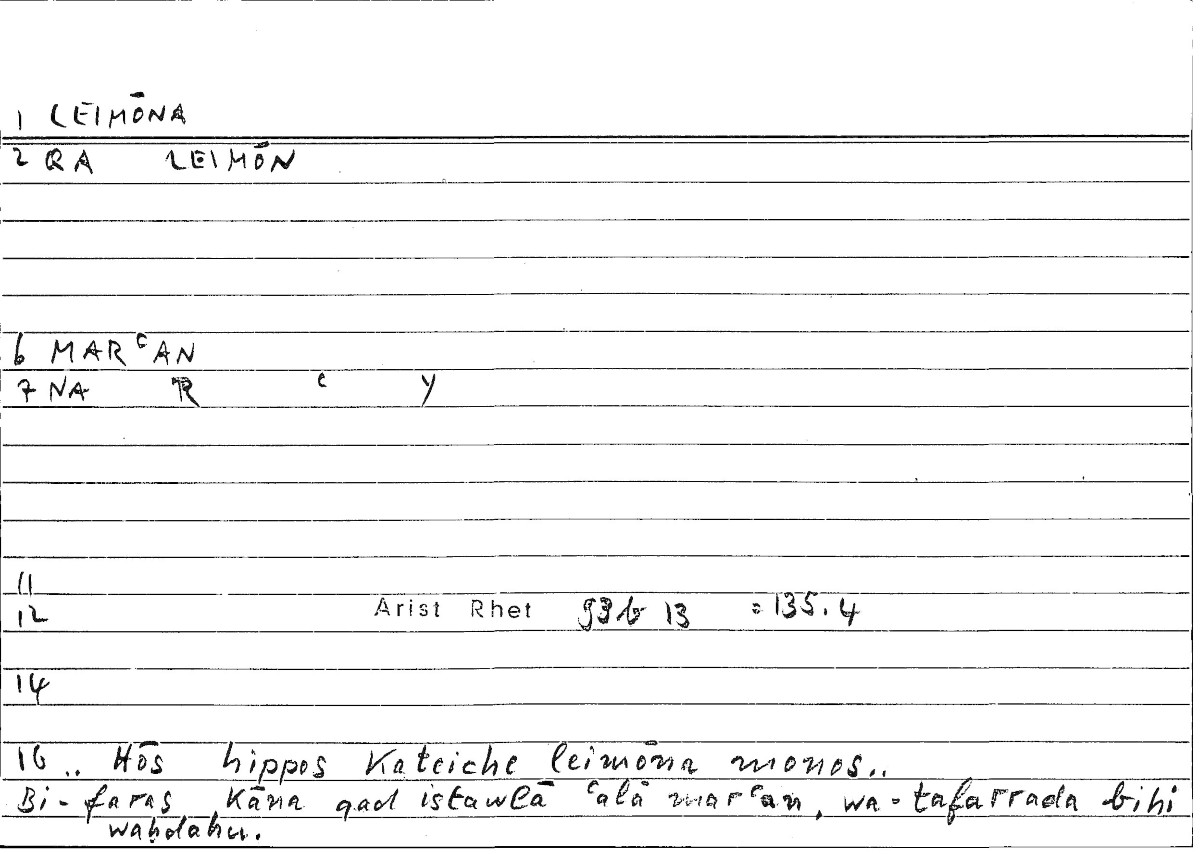 1 LEIMŌNA
2 QA LEIMŌN
6 MARᶜAN
7 NA R ᶜ Y
11
12 Arist Rhet 93b 13 = 135.4
14
16 .. Hōs hippos kateiche leimōna monos..
Bi-faras kāna qad istawlā ᶜalā marᶜan, wa-tafarrada bihi
waḥdahu.